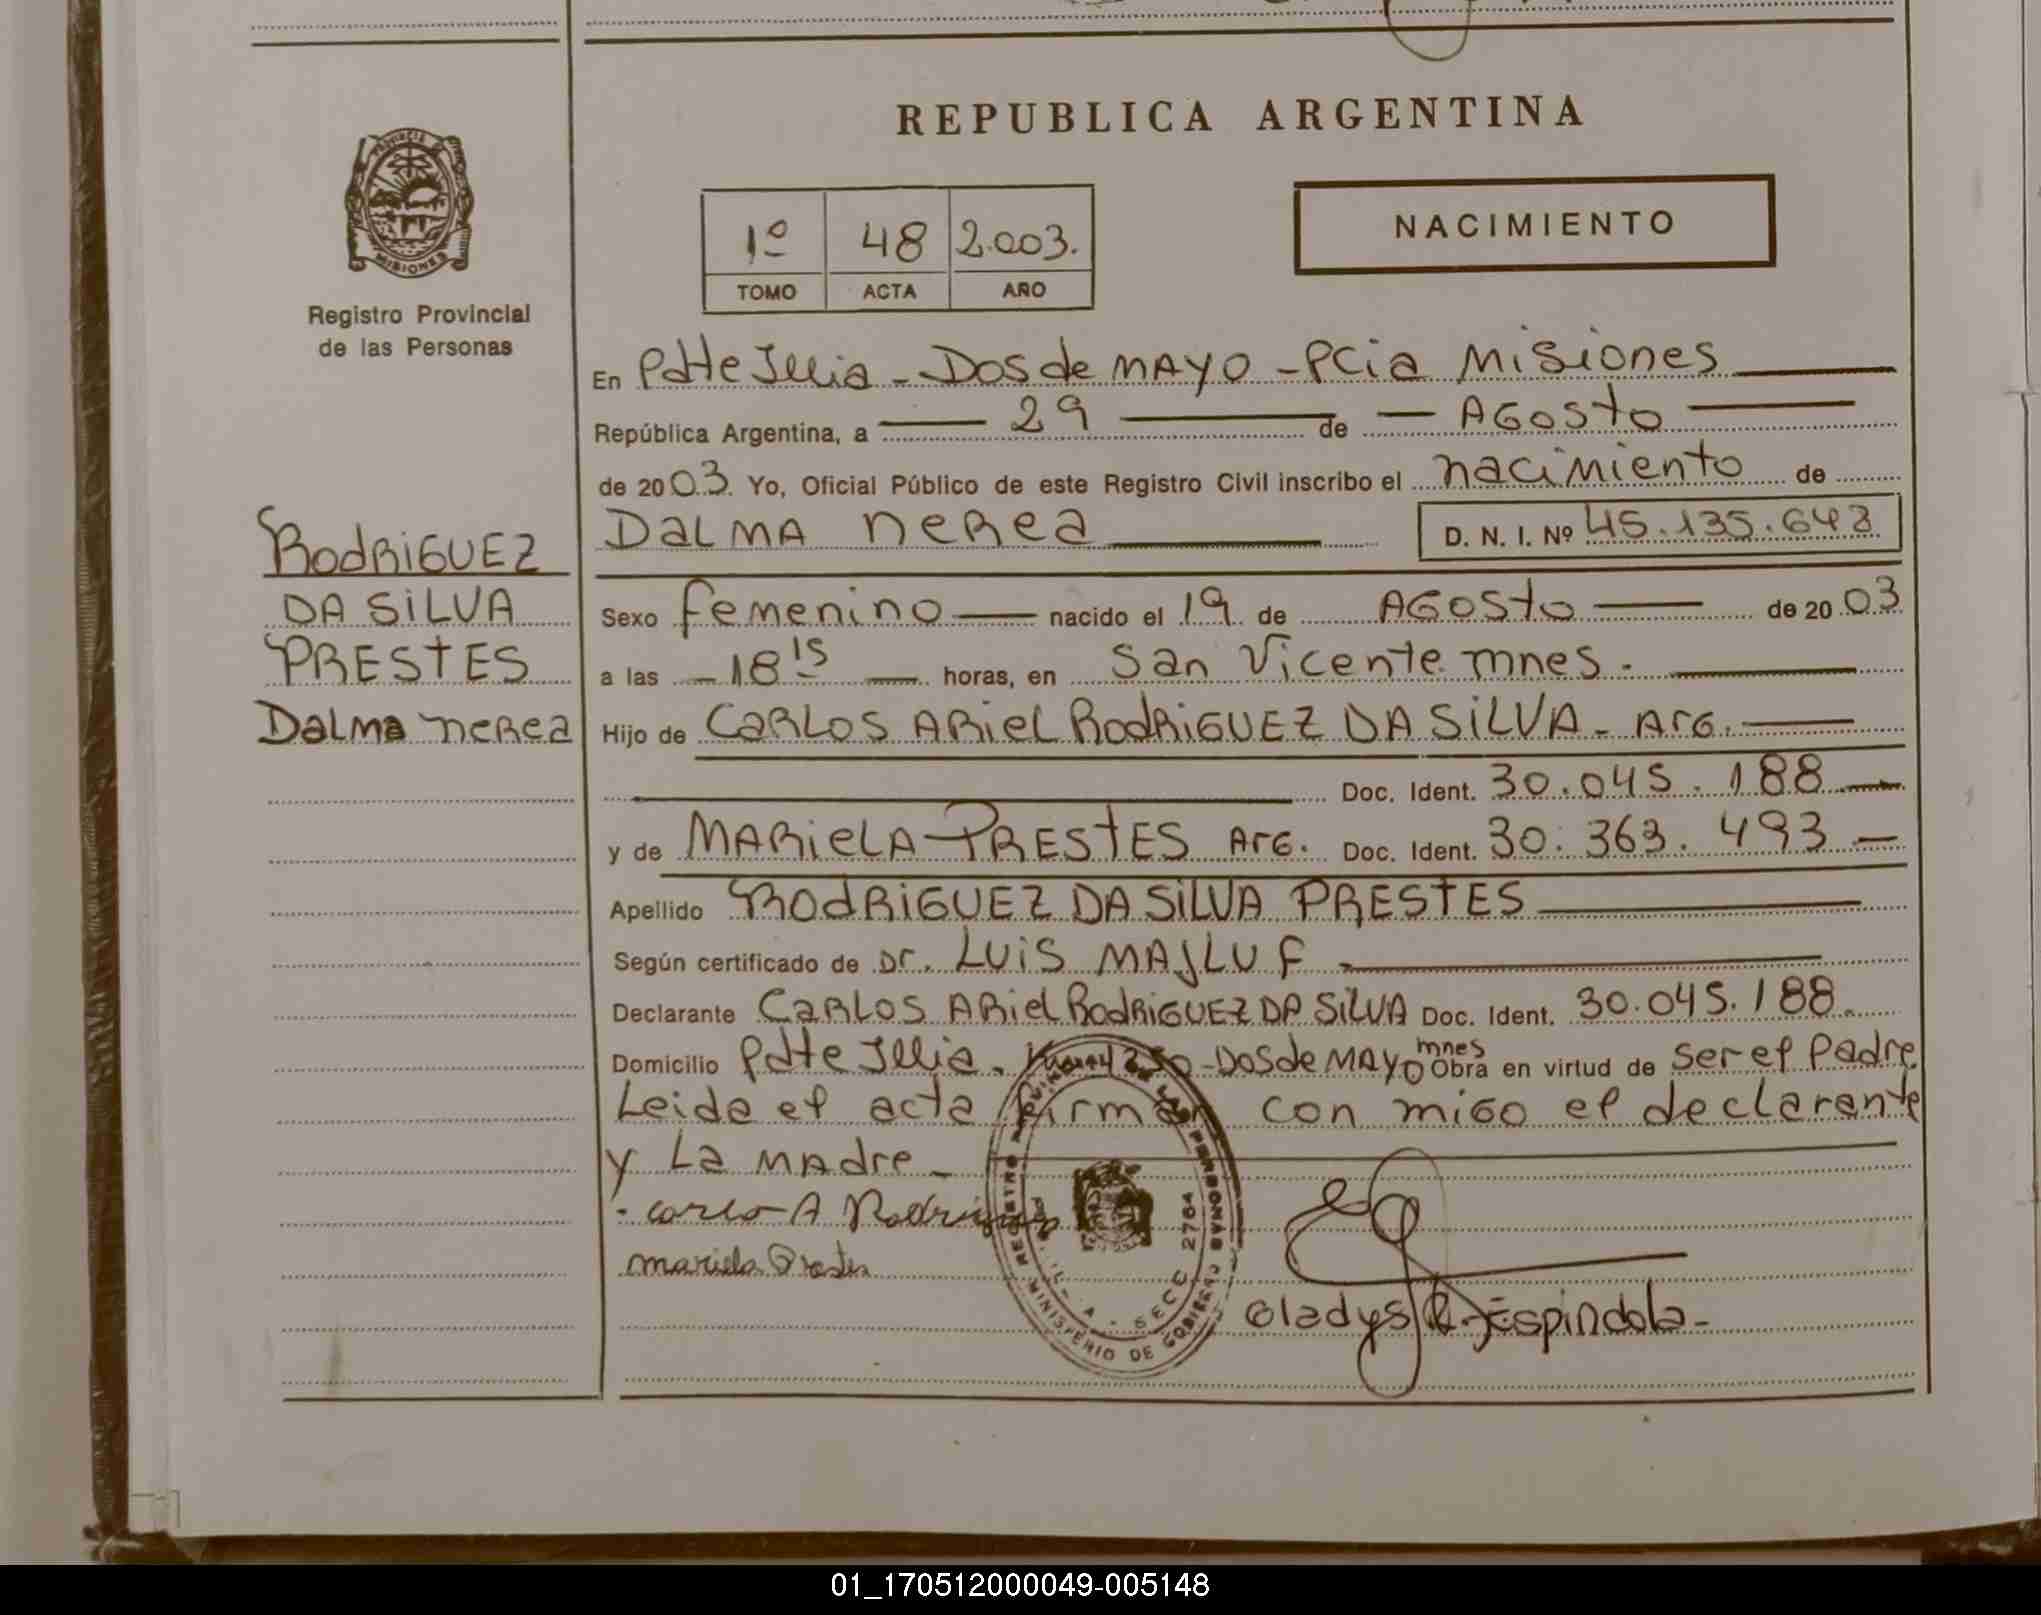 REPUBLICA ARGENTINA
PROVINCIA DE
MISIONES
Registro Provincial
de las Personas
1º 48 2.003.
TOMO ACTA AÑO
NACIMIENTO
En Pdte Illia - Dos de MAYO - PCia Misiones
República Argentina, a 29 de AGosto
de 2003. Yo, Oficial Público de este Registro Civil inscribo el nacimiento de
DaLMA neRea D. N. I. Nº 45.135.643
RodRiGUEZ
DA SiLVA
PRESTES
DaLMa neRea
Sexo femenino nacido el 19 de AGosto de 2003
a las 18 15 horas, en San Vicente mnes.
Hijo de CaRLOS ARieL RodRiGUEZ DA SiLVA - ArG.
Doc. Ident. 30.045.188
y de MARieLA PRESTES ArG. Doc. Ident. 30.363.493
Apellido RodRiGUEZ DA SiLVA PRESTES
Según certificado de Dr. LUiS MAJLUF
Declarante CaRLOS ARieL RodRiGUEZ DA SiLVA Doc. Ident. 30.045.188.
Domicilio Pdte Illia. - Dos de MAYO mnes Obra en virtud de Ser el Padre
Leida el acta firman con miGo el declarante
y La MAdre -
Carlo A Rodriguez
mariela Prestes
REGISTRO PROVINCIAL DE LAS PERSONAS
MINISTERIO DE GOBIERNO
SECC 2764
Gladys R. Espindola -
01_170512000049-005148